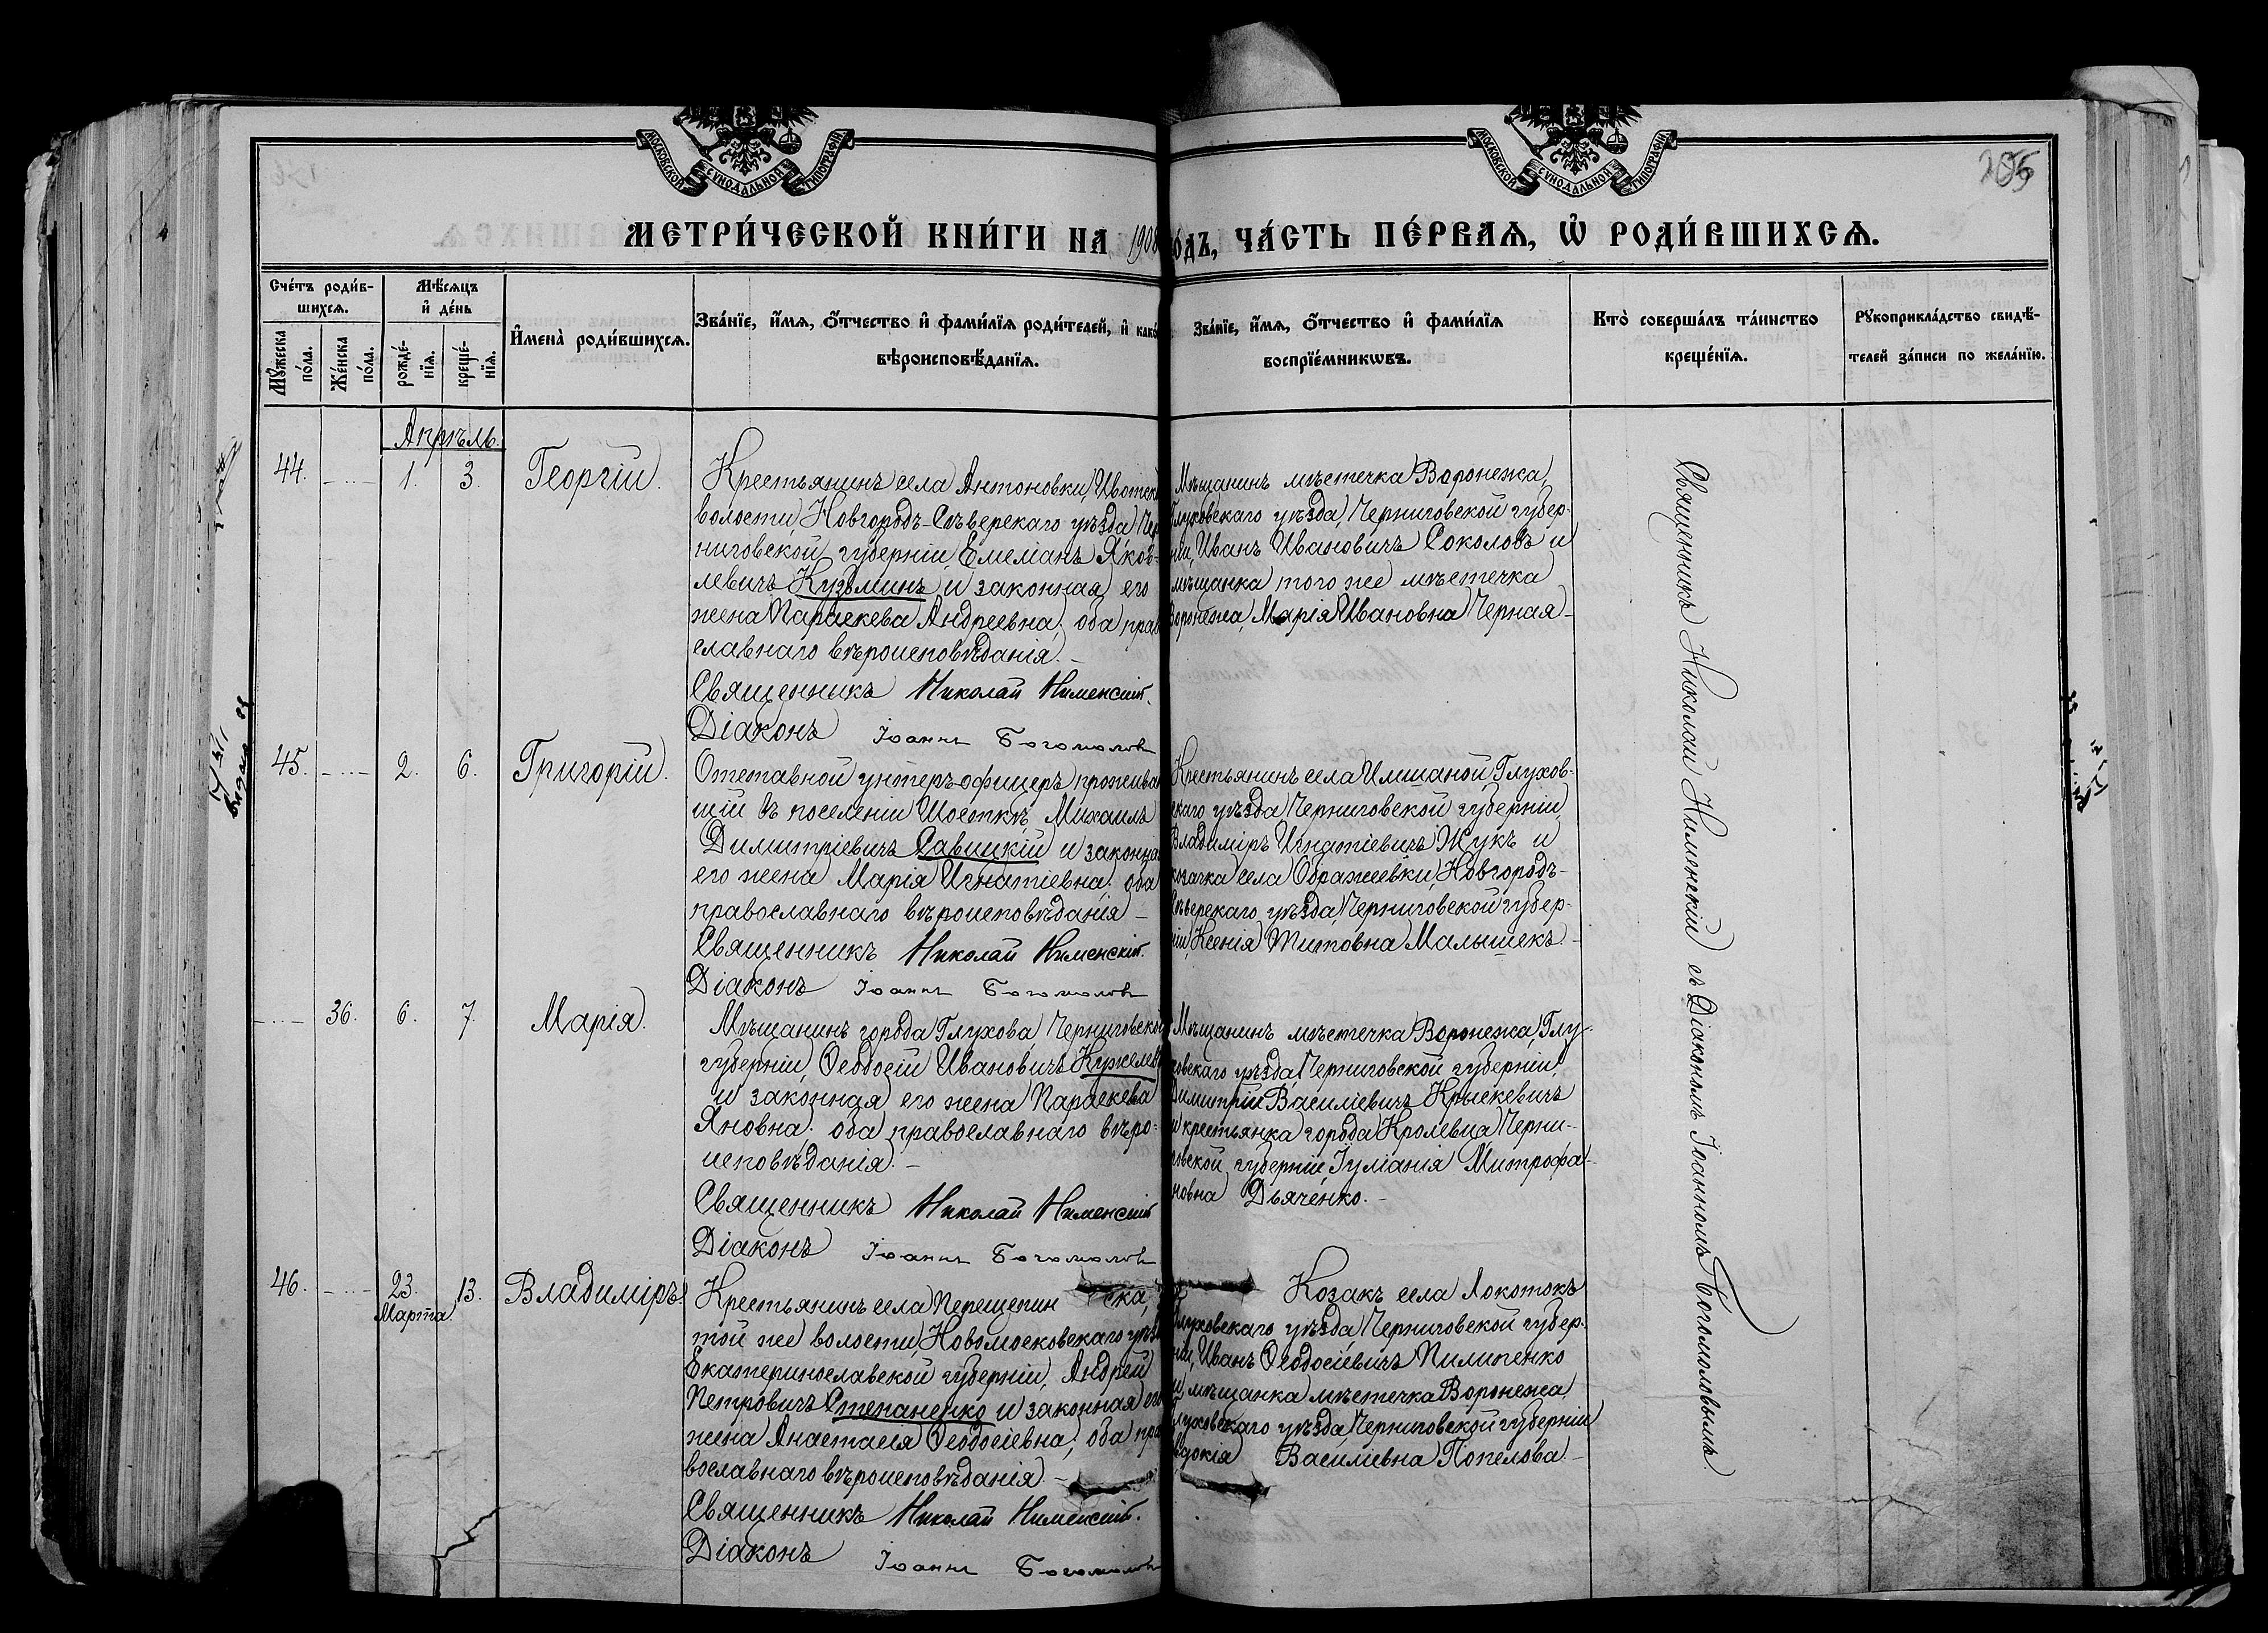 МОСКОВСКОЙ СѴНОДАЛЬНОЙ ТИПОГРАФІИ
МОСКОВСКОЙ СѴНОДАЛЬНОЙ ТИПОГРАФІИ
205
МЕТРИ́ЧЕСКОЙ КНИ́ГИ НА 1908
О́ДЪ, ЧА́СТЬ ПЕ́РВАѦ, Ѡ҆ РОДИ́ВШИХСѦ.
Сче́тъ роди́в-
шихсѧ.
Мꙋ́жеска по́ла.
Же́нска по́ла.
Мѣ́сѧцъ
и҆ де́нь
рожде́-
нїѧ.
креще́-
нїѧ.
И҆мена̀ роди́вшихсѧ.
Зва́нїе, и҆́мѧ, ѻ҆́тчество и҆ фами́лїѧ роди́телей, и҆ како́
вѣроисповѣ́данїѧ.
Зва́нїе, и҆́мѧ, ѻ҆́тчество и҆ фами́лїѧ
воспрїе́мникѡвъ.
Кто̀ соверша́лъ та́инство
креще́нїѧ.
Рꙋкоприкла́дство свидѣ́-
телей за́писи по жела́нїю.
Апрѣль.
44. 1. 3. Георгій.
Крестьянинъ села Антоновки, Ивотск
волости, Новгородъ-Сѣверскаго уѣзда Чер
ниговской губерніи, Емеліанъ Яков-
левичъ Кузьминъ и законная его
жена Параскева Андреевна; оба прав
славнаго вѣроисповѣданія.
Священникъ Николай Нименскій.
Діаконъ Іоаннъ Богомоловъ
Мѣщанинъ мѣстечка Воронежа,
Глуховскаго уѣзда, Черниговской губер-
ніи, Иванъ Ивановичъ Соколовъ и
мѣщанка того же мѣстечка
Воронежа, Марія Ивановна Черная
45. 2. 6. Григорій.
Отставной унтеръ-офицеръ, прожива
щій въ поселеніи Шосткѣ, Михаилъ
Димитріевичъ Савицкій и законна
его жена Марія Игнатіевна; оба
православнаго вѣроисповѣданія
Священникъ Николай Нименскій.
Діаконъ Іоаннъ Богомоловъ
Крестьянинъ села Имшаной, Глухов-
скаго уѣзда, Черниговской губерніи,
Владиміръ Игнатіевичъ Жукъ и
козачка села Ображеевки, Новгородъ-
Сѣверскаго уѣзда, Черниговской губер-
ніи, Ксенія Титовна Малышекъ.
36. 6. 7. Марія.
Мѣщанинъ города Глухова, Черниговской
губерніи, Ѳеодосій Ивановичъ Кужелев
и законная его жена Параскева
Яновна; оба православнаго вѣро-
исповѣданія.
Священникъ Николай Нименскій
Діаконъ Іоаннъ Богомоловъ
Мѣщанинъ мѣстечка Воронежа, Глу-
ховскаго уѣзда, Черниговской губерніи,
Димитрій Василіевичъ Крыскевичъ
и крестьянка города Кролевца, Черни-
говской губерніи, Іуліанія Митрофа-
новна Дьяченко.
46. 23. Марта. 13. Владиміръ.
Крестьянинъ села Перещепин ска,
той же волости, Новомосковскаго уѣз
Екатеринославской губерніи, Андрей
Петровичъ Степаненко и законная его
жена Анастасія Ѳеодосіевна; оба пра
вославнаго вѣроисповѣданія.
Священникъ Николай Нименскій.
Діаконъ Іоаннъ Богомоловъ
Козакъ села Локотокъ
Глуховскаго уѣзда, Черниговской губер-
ніи, Иванъ Ѳеодосіевичъ Пилипенко
и мѣщанка мѣстечка Воронежа,
Глуховскаго уѣзда, Черниговской губерніи
вдокія Василіевна Попелова.
Священникъ Николай Нименскій съ Діакономъ Іоанномъ Богомоловымъ.